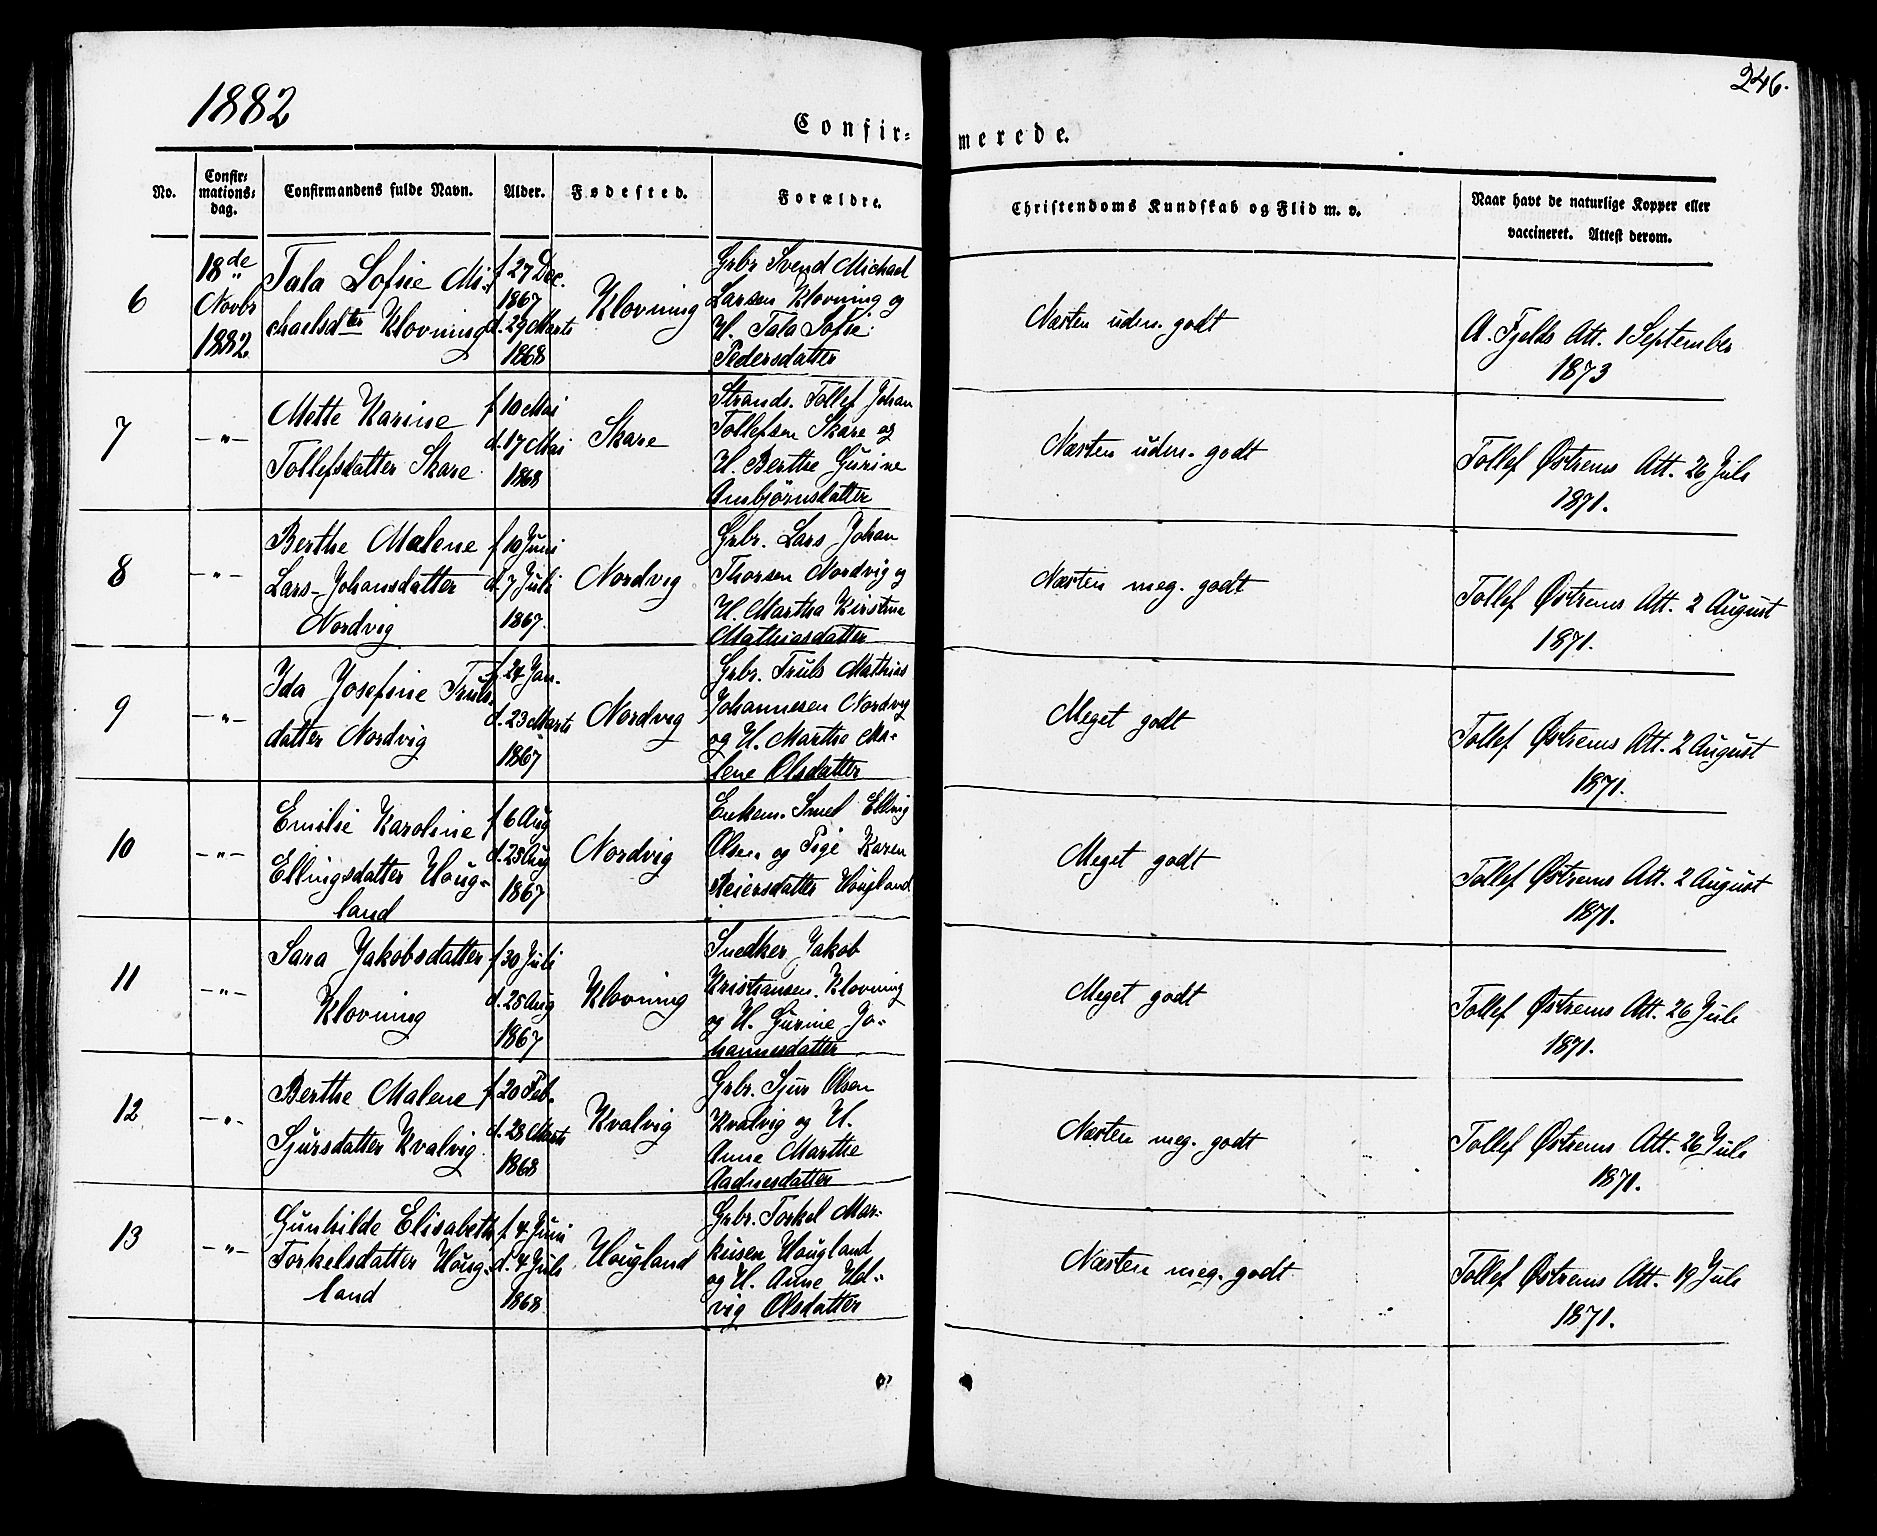 1882
246.
Confir=
merede.
No.
Confir=
mations=
dag.
Confirmandens fulde Navn.
Alder.
Fødested.
Forældre.
Christendoms Kundskab og Flid m. v.
Naar havt de naturlige Kopper eller
vaccineret. Attest derom.
6
18de
Novbr
1882.
Tala Sofie Mi-
chaelsdter Klovning
f 27 Dec.
1867
d. 29 Marts
1868
Klovning
Grbr Svend Michael
Larsen Klovning og
H. Tala Sofie
Pedersdatter
Næsten udm. godt
A. Fjelds Att. 1 September
1873
7
—"—
Mette Karine
Tollefsdatter Skare
f 10 Mai
d. 17 Mai
1868
Skare
Strands. Tollef Johan
Tollefsen Skare og
H. Berthe Gurine
Ambjørnsdatter
Næsten udm. godt
Tollef Østrems Att. 26 Juli
1871.
8
—"—
Berthe Malene
Lars-Johansdatter
Nordvig
f 10 Juni
d. 7 Juli
1867.
Nordvig
Grbr. Lars Johan
Thorsen Nordvig og
H. Martha Kirstine
Mathiasdatter
Næsten meg. godt
Tollef Østrems Att. 2 August
1871.
9
—"—
Ida Josefine Truls-
datter Nordvig
f. 24 Jan.
d. 23 Marts
1867
Nordvig
Grbr. Truls Mathias
Johannesen Nordvig
og H. Marthe Ma-
lene Olsdatter
Meget godt
Tollef Østrems Att. 2 August
1871.
10
—"—
Emilie Karoline
Ellingsdatter Houg-
land
f 6 Aug
d. 25 Aug
1867
Nordvig
Enkem. Smed Elling
Olsen og Pige Karen
Reiersdatter Hougland
Meget godt
Tollef Østrems Att. 2 August
1871.
11
—"—
Sara Jakobsdatter
Klovning
f 30 Juli
d. 25 Aug
1867
Klovning
Snedker Jakob
Kristiansen Klovning
og H. Gurine Jo-
hannesdatter
Meget godt
Tollef Østrems Att. 26 Juli
1871.
12
—"—
Berthe Malene
Sjursdatter Kvalvig
f 20 Feb.
d. 28 Marts
1868
Kvalvig
Grbr. Sjur Olsen
Kvalvig og H.
Anne Marthe
Aadnesdatter
Næsten meg. godt
Tollef Østrems Att. 26 Juli
1871.
13
—"—
Gunhilde Elisabeth
Torkelsdatter Houg-
land
f. 4 Juni
d. 4 Juli
1868.
Hougland
Grbr. Torkel Mar-
kusen Hougland
og H. Anne Hel-
vig Olsdatter
Næsten meg. godt
Tollef Østrems Att. 19 Juli
1871.